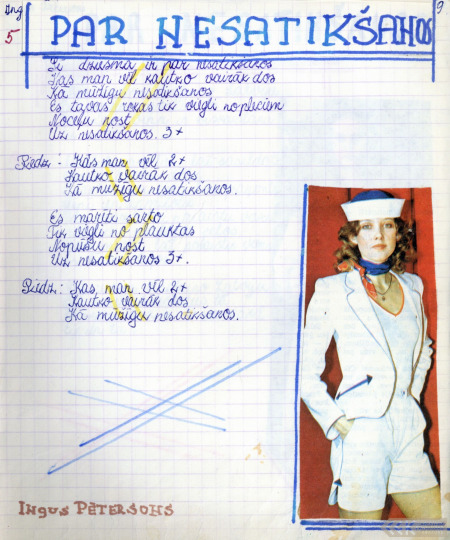 Ing 9
5
PAR NESATIKŠANOS
Šī dziesma ir par nesatikšanos
Kas man vēl kautko vairāk dos
Kā mūžīgu nesatikšanos
Es tavas rokas tik viegli no pleciem
Noceļu nost
Uz nesatikšanos. 3×
Piedz: Kas man vēl 2×
Kautko vairāk dos
Kā mūžīgu nesatikšanos.
Es mārīti sarto
Tik viegli no plaukstas
Nopūšu nost
Uz nesatikšanos 3×.
Piedz: Kas man vēl 2×
Kautko vairāk dos
Kā mūžīgu nesatikšanos.
INGUS PĒTERSONS